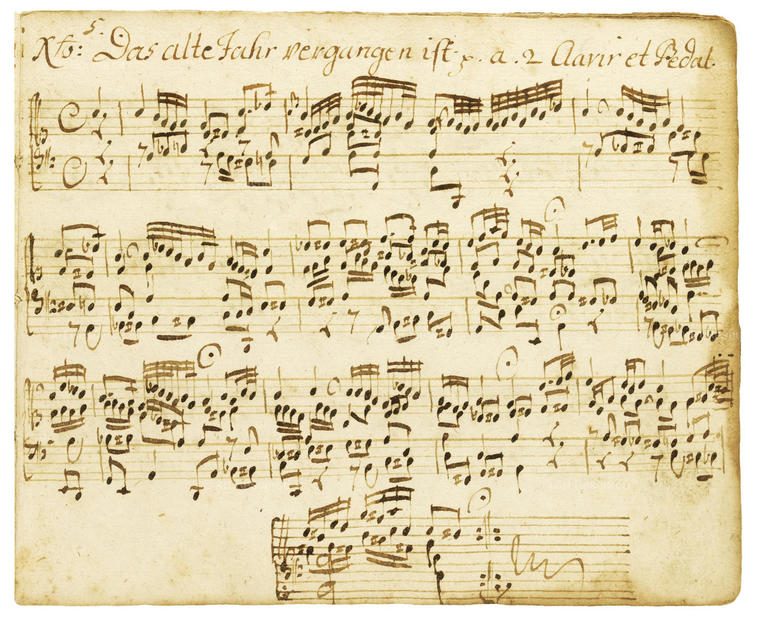 No: 5. Das alte Jahr vergangen ist. p. a. 2 Clavir et Pedal.